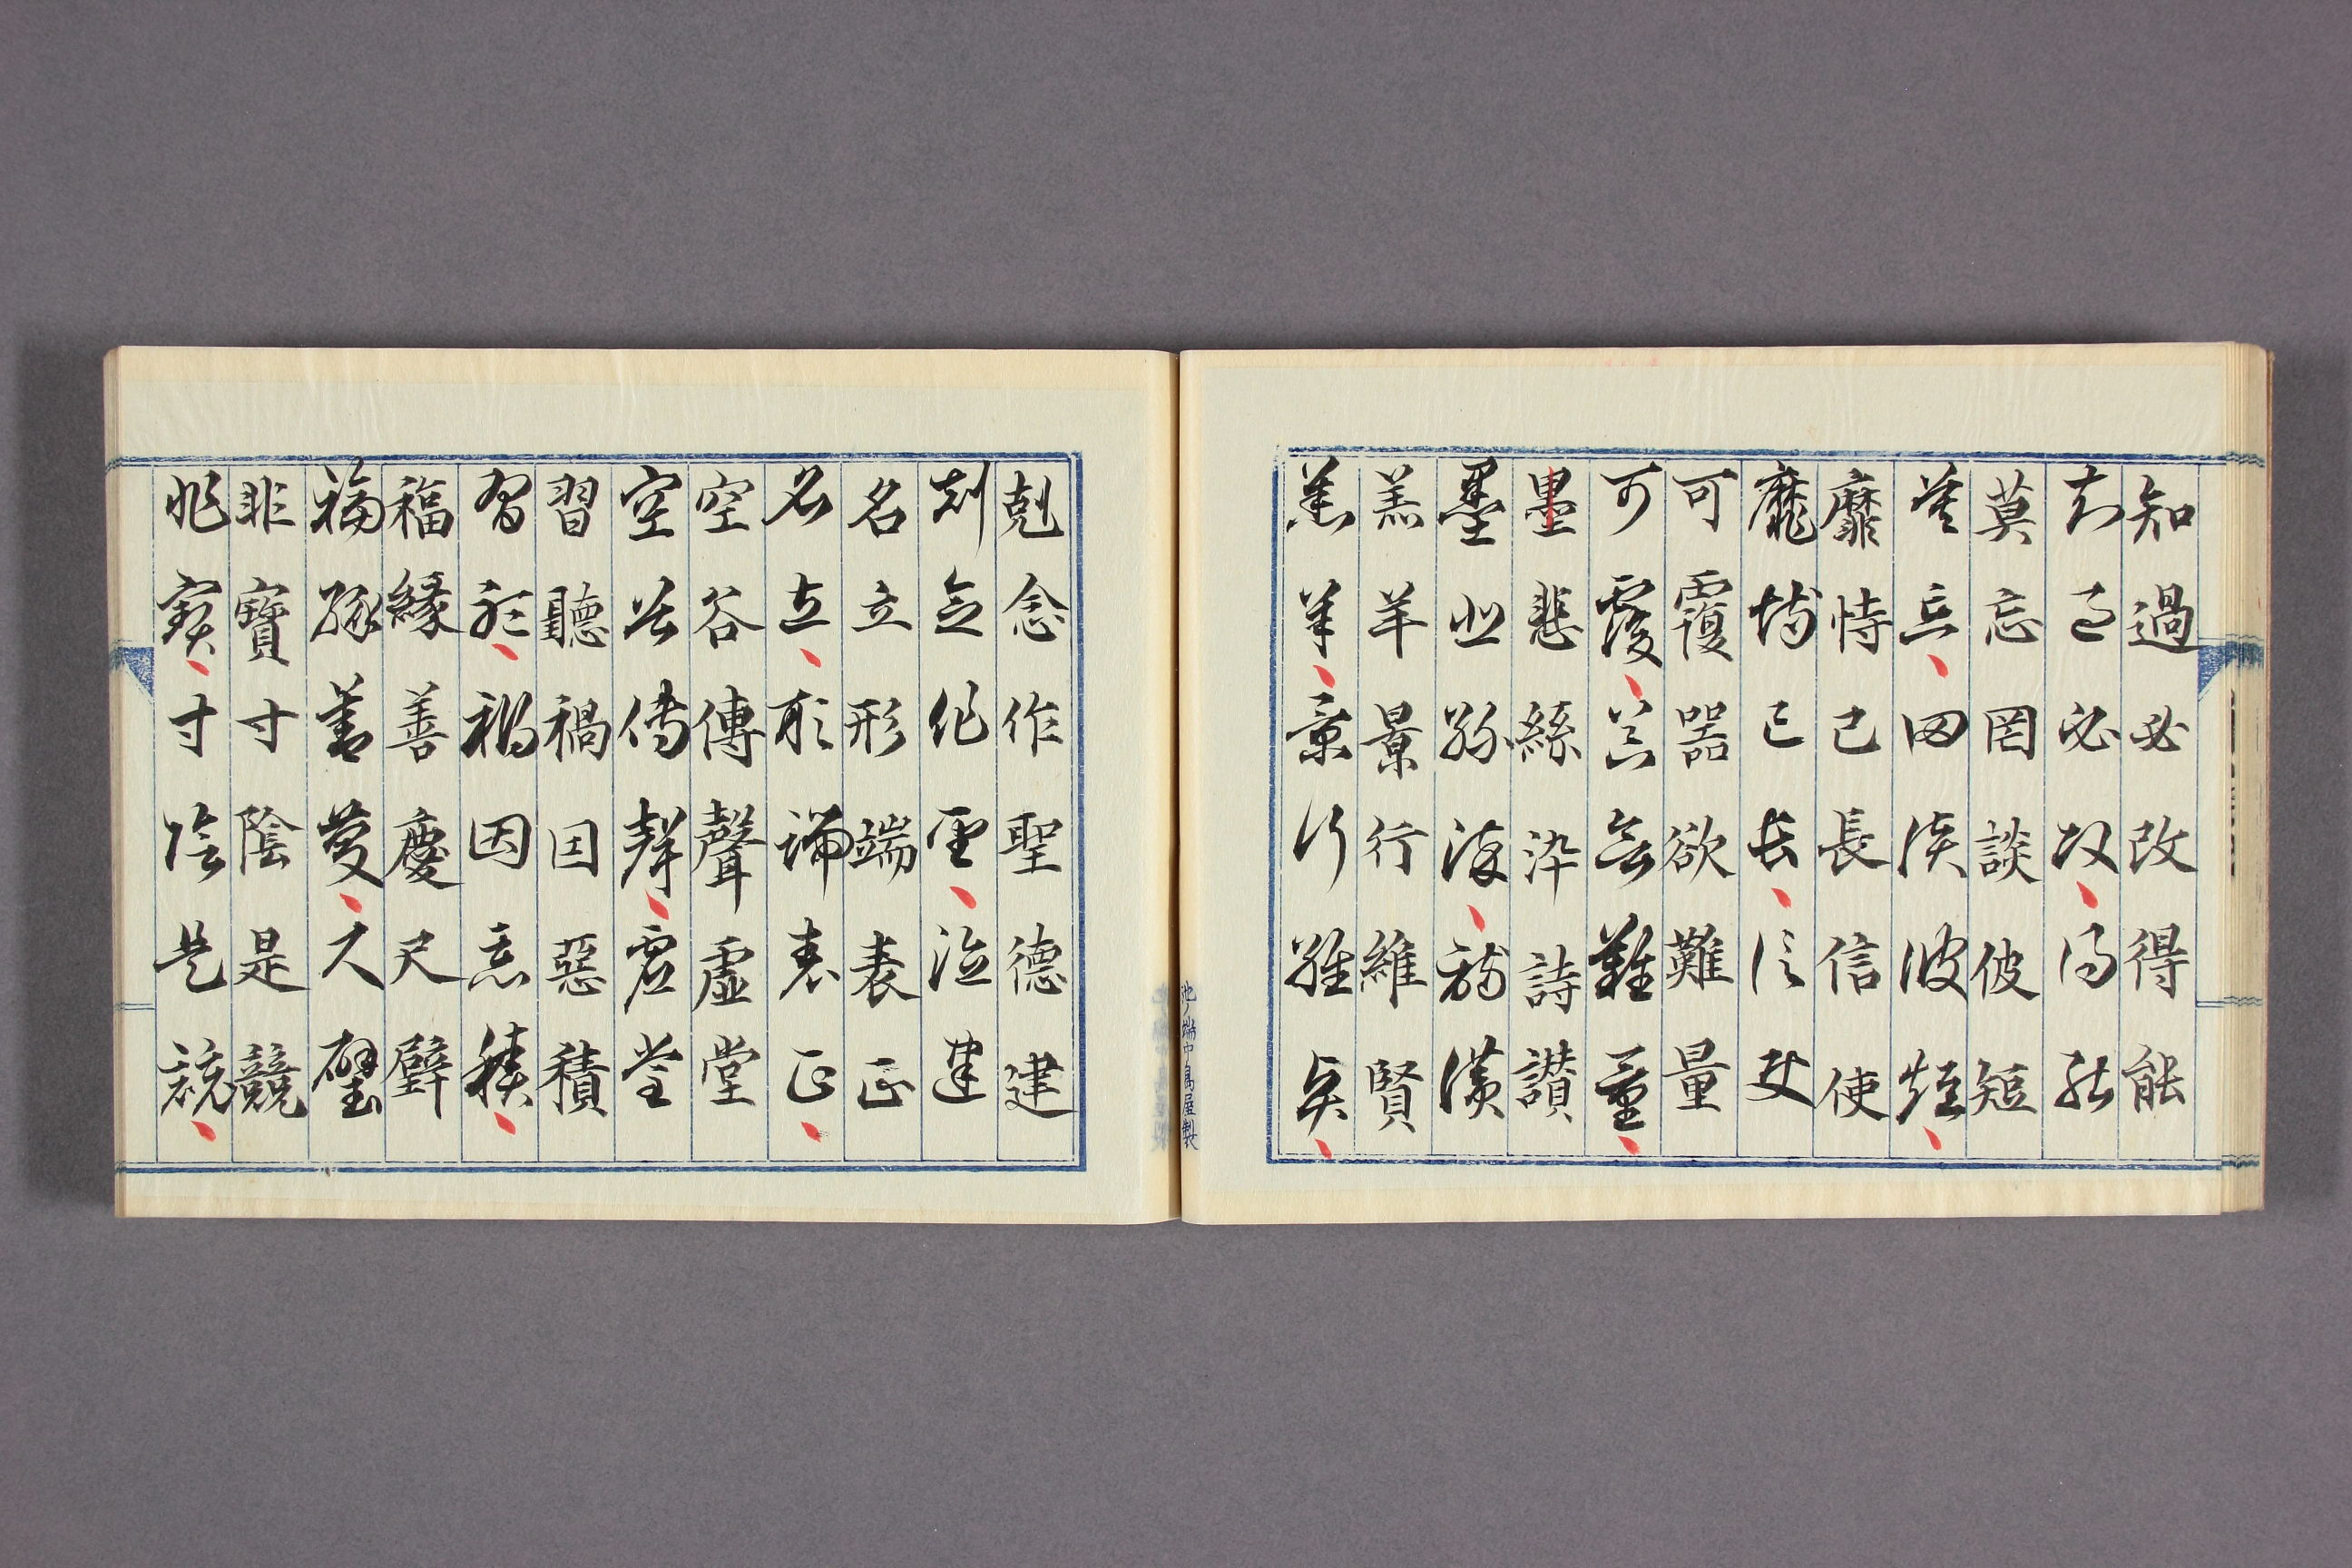 知過必改得能
知過必改得能
莫忘罔談彼短
莫忘罔談彼短
靡恃己長信使
靡恃己長信使
可覆器欲難量
可覆器欲難量
墨悲絲染詩讃
墨悲絲染詩讃
羔羊景行維賢
羔羊景行維賢
剋念作聖德建
剋念作聖德建
名立形端表正
名立形端表正
空谷傳聲虛堂
空谷傳聲虛堂
習聽禍因惡積
習聽禍因惡積
福緣善慶尺璧
福緣善慶尺璧
非寶寸陰是競
非寶寸陰是競
池ノ端中島屋製